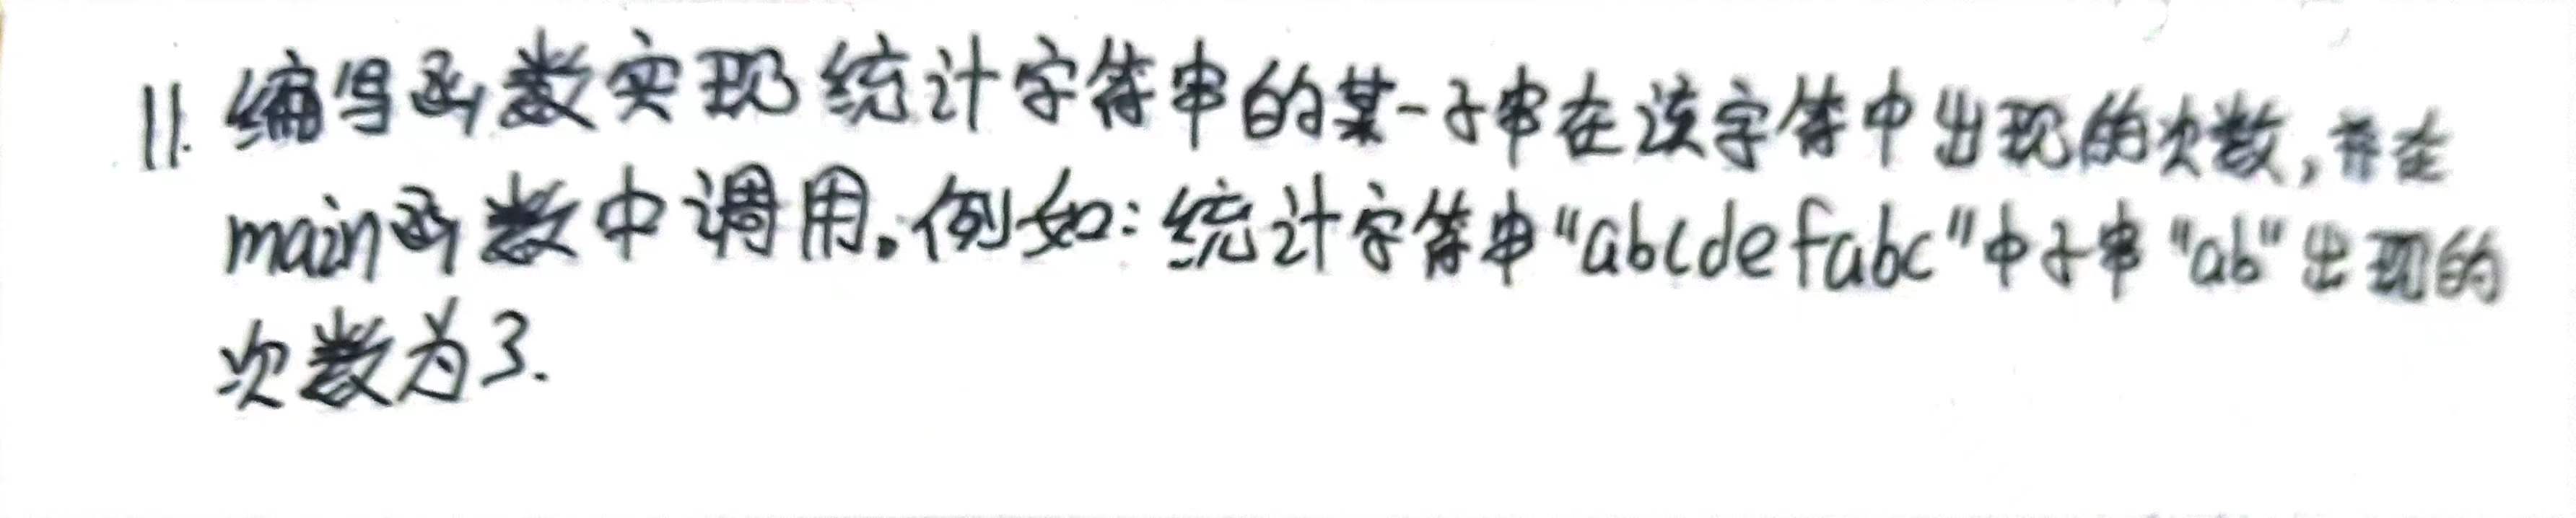 11. 编写函数实现统计字符串的某一子串在该字符中出现的次数,并在
main函数中调用。例如:统计字符串"abcdefabc"中子串"ab"出现的
次数为3.